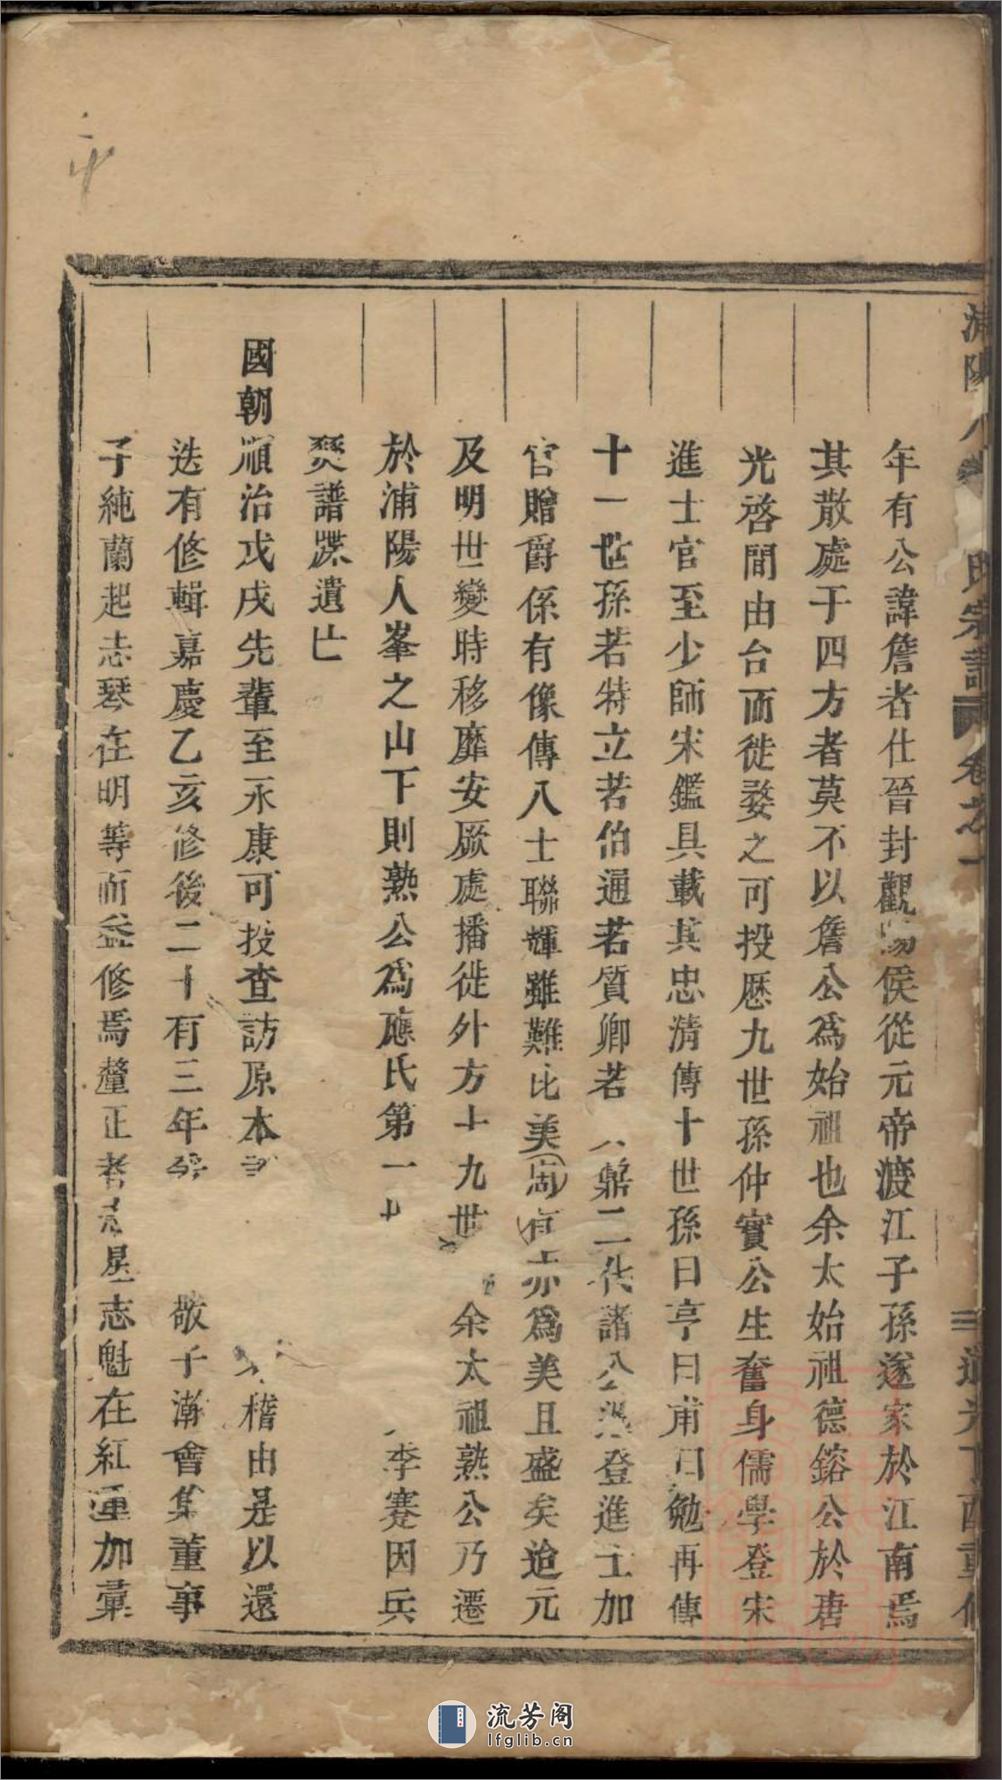 年有公諱詹者仕晉封觀陽侯從元帝渡江子孫遂家於江南焉
其散處于四方者莫不以詹公爲始祖也余太始祖德鎔公於唐
光啓間由台而徙婺之可投歷九世孫仲實公生奮身儒學登宋
進士官至少師宋鑑具載其忠清傳十世孫曰亨曰甫曰勉再傳
十一世孫若特立若伯通若質卿若 鼎二代諸公 登進士加
官贈爵係有像傳八士聯輝雖難比美 亦爲美且盛矣迨元
及明世變時移靡安厥處播徙外方十九世 余太祖熟公乃遷
於浦陽人峯之山下則熟公爲應氏第一 李蹇因兵
燹譜牒遺亡
國朝順治戊戌先輩至永康可投查訪原本 稽由是以還
迭有修輯嘉慶乙亥修後二十有三年 敬于瀚會集董事
子純蘭起志琴在明等而益修焉釐正者 星志魁在紅運加彙
流芳阁
lfglib.cn